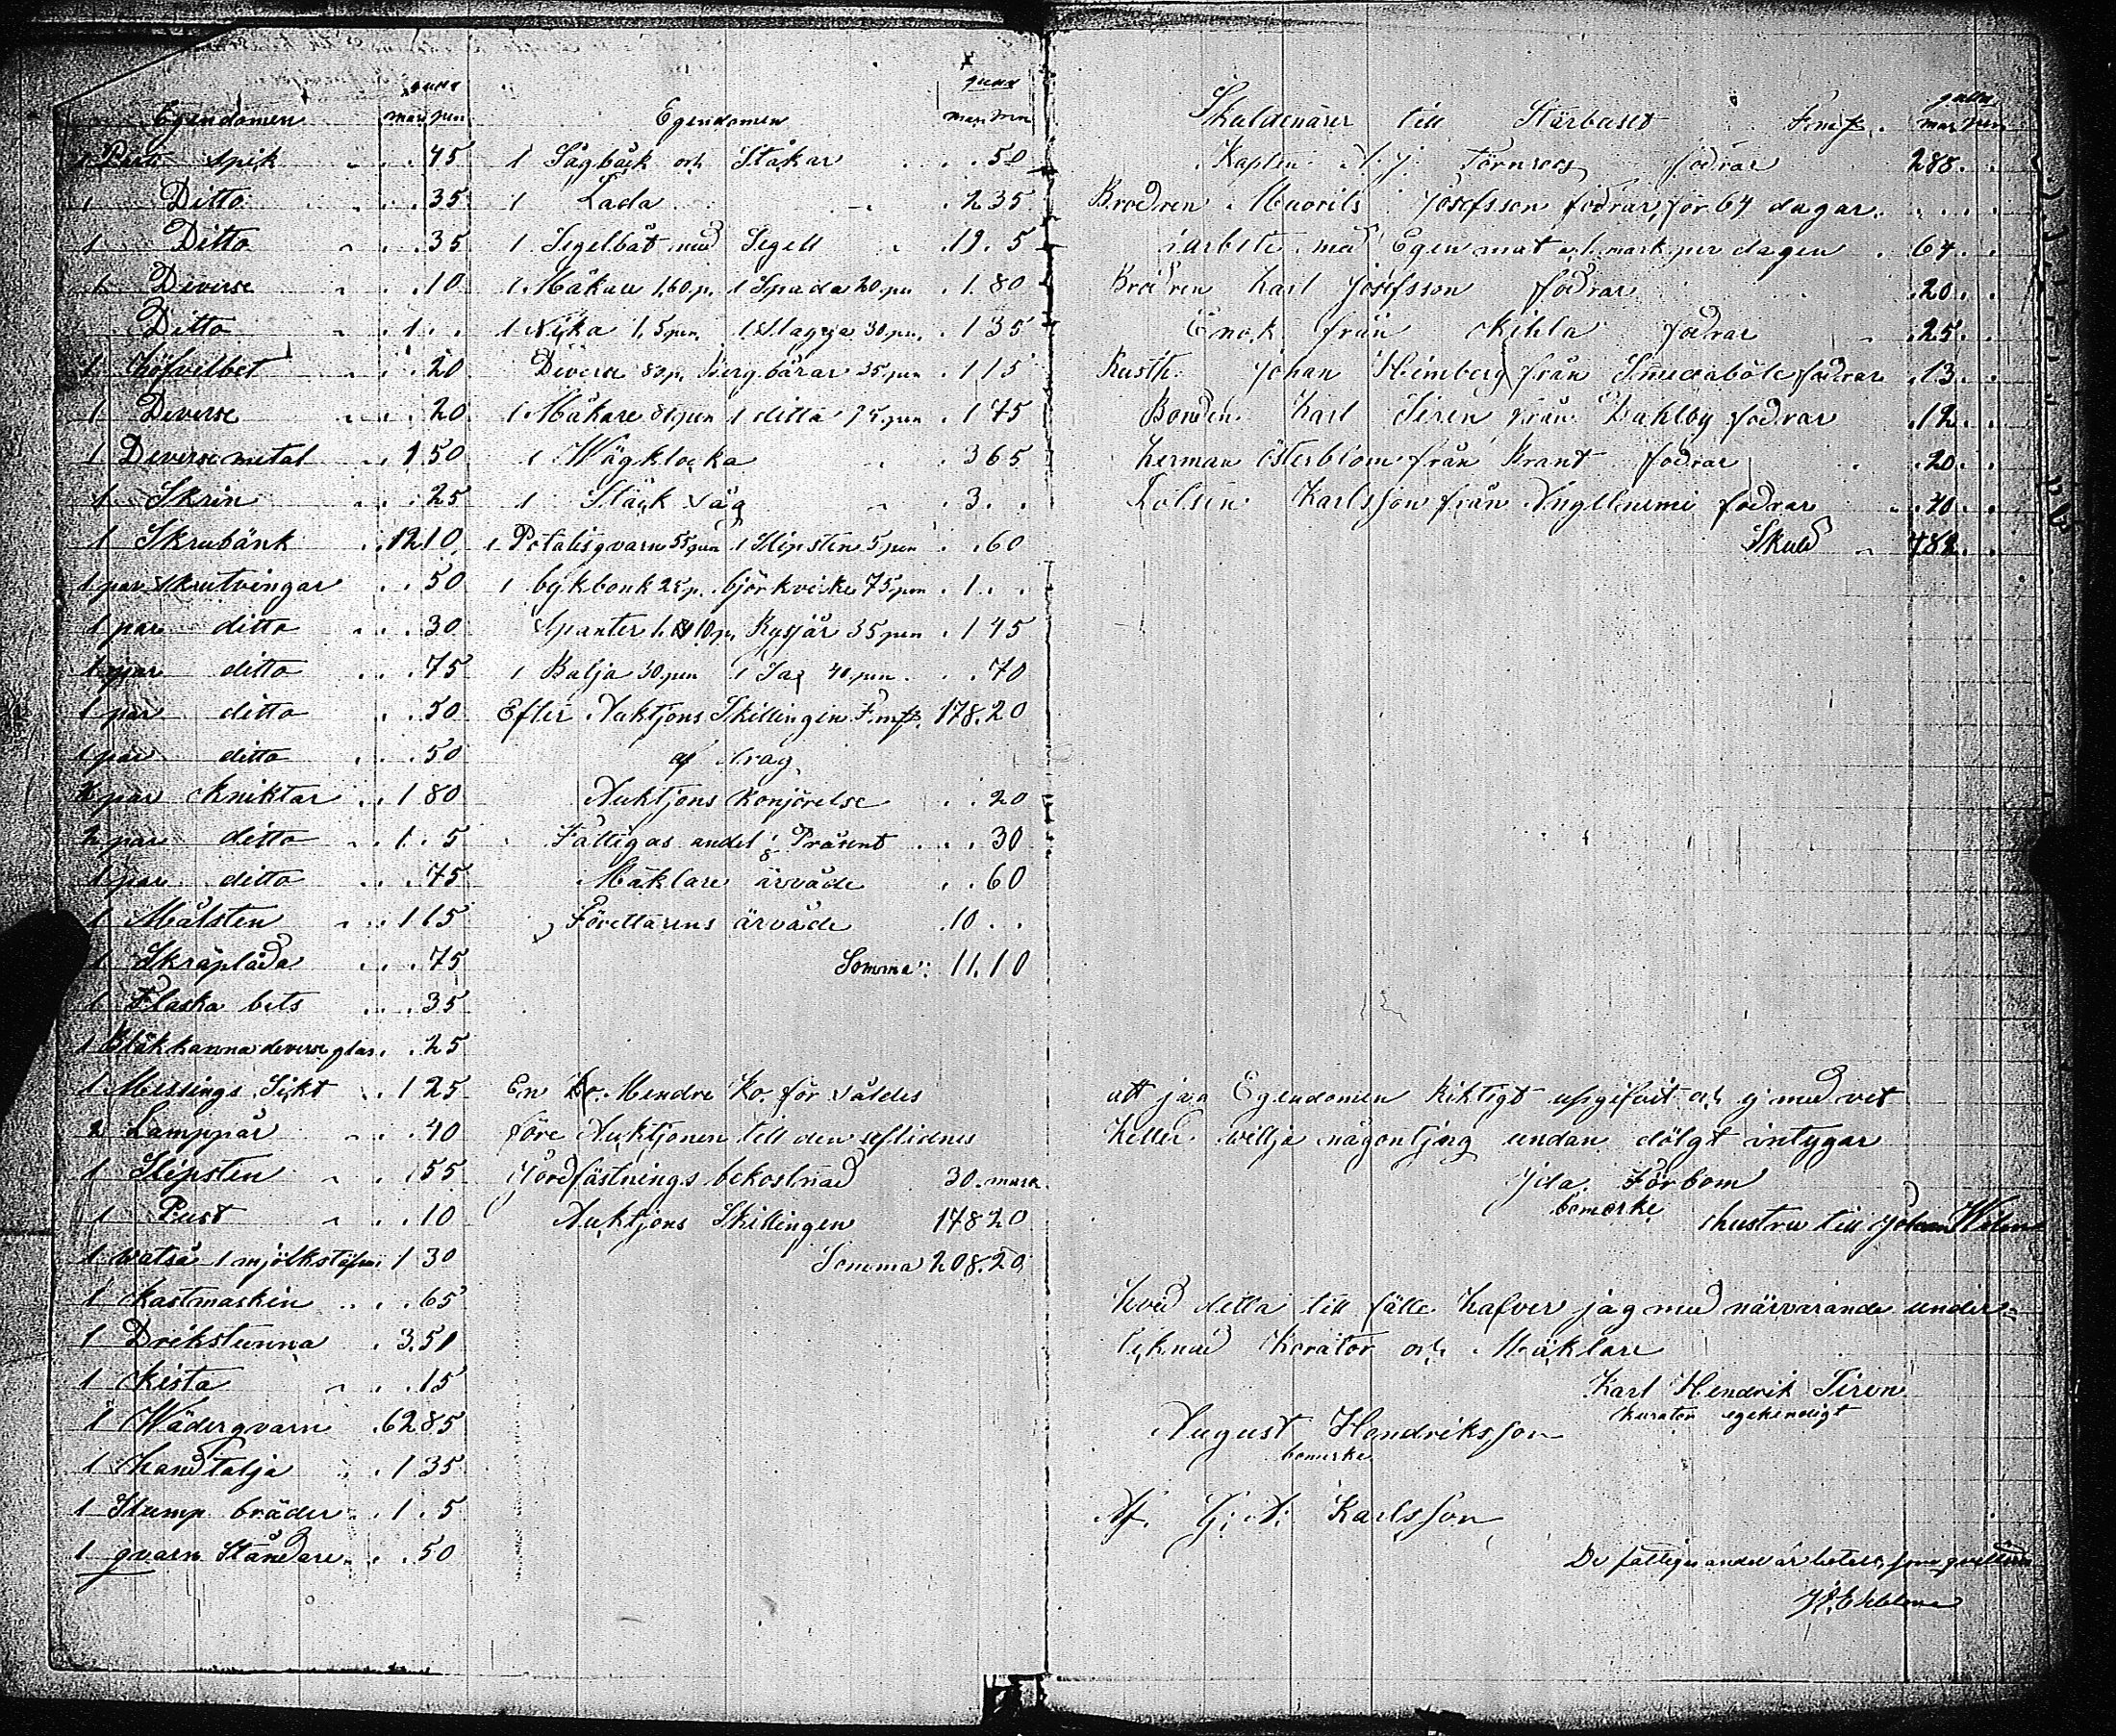 Egendomen mar. pen
Part spik . . 45
1 Ditto . . 35
1 Ditto . . 35
1 Diverse . . 10
Ditto . 1 . .
1 Höfvelbet . . 20
1 Diverse . . 20
1 Diverse metal . 1 50
1 Skrin . . 25
1 Skrubänk . 12 10
1 par Skrutvingar . . 50
1 par ditto . . 30
1 par ditto . . 75
1 par ditto . . 50
1 par ditto . . 50
2 par Kniktar . . 1 80
2 par ditto . . 1 . 5
1 par ditto . . 75
1 Målsten . . 1 15
1 Skräplåda . . 75
1 Flaska bets . . 35
1 Bläkkanna deverse glas . . 25
1 Messings Sikt . 1 25
2 Lamppar . . 40
1 Slipsten . . 55
1 Pust . . 10
1 1 30
1 Kastmaskin . . 65
1 Drikstunna . 3.51
1 Kista . . 15
1 Wäderqvarn . 62 85
1 handtalja . 1 35
1 Stump bräder . 1 . 5
1 qvarn Ståndare . . 50
Egendomen mar. pen
1 Sågbåck och Stakar . . 50
1 Lada . 2 35
1 Segelbåt med Segell . 19 . 5
1 1,60 p. 1 Spada 20 pen . 1 80
1 1,5 pen. 1 30 pen. . 1 35
Diverse 80 p. bärar 35 pen . 1 15
1 pen 1 ditto 75 pen . 1 75
1 Wägklocka . 3 65
1 Ståck såg . 3 . .
1 Potatisqvarn 55 pen 1 Slipsten 5 pen . . 60
1 bykbonk 25 p. björkvirke 75 pen . 1 . .
1,10 p. 35 pen . 1 45
1 Balja 30 pen 1 Sax 40 pen . . 70
Efter Auktjons Skillingin Fmk. 178.20
af drag
Auktjons Konjörelse . . 20
Fattigas andel Präsent . . . 30
Mäklare arvåde . . 60
Förettarens arvåde . 10 . .
Somma: 11.10
En Mendre Ko. för såldes
före Auktjonen till den aflidnes
Jordfästnings bekostnad 30. mark.
Auktjons Skillingen 178 20
Somma 208.20
Skuldenärer till Stärbuset Fmk. mar pen
Kapten A. J. Törnroos fodrar 288 . .
Brodren Maurits Josefsson fodrar, för 64 dagar . . . .
i arbete med Egen mat a 1 mark per dagen . 64 . .
Brödren Karl Josefsson fodrar . 20 . .
Enok från Kihla fodrar . 25 . .
Rusth. Johan Heimberg från Smedaböle fodrar . 13 . .
Bonden Karl Siren från Dahlby fodrar . 12 . .
herman Österblom från Krant fodrar . 20 . .
Karlsson från fodrar . 40 . .
Skuld . 482 . .
att jag Egendomen Riktigt upgifvit och ej med vet
heller willja någontjng undan dölgt intygar
Ida Forbom
bomerke hustru till Johan
hvad detta till fälle hafver jag med närvarande under=
teknad Korator och Mäklare
Karl Hendrik Siren
Kurator egehendigt
August Hendriksson
bomerke
Af. G. A. Karlsson
De fattiges andel är betalt, som qvitteras